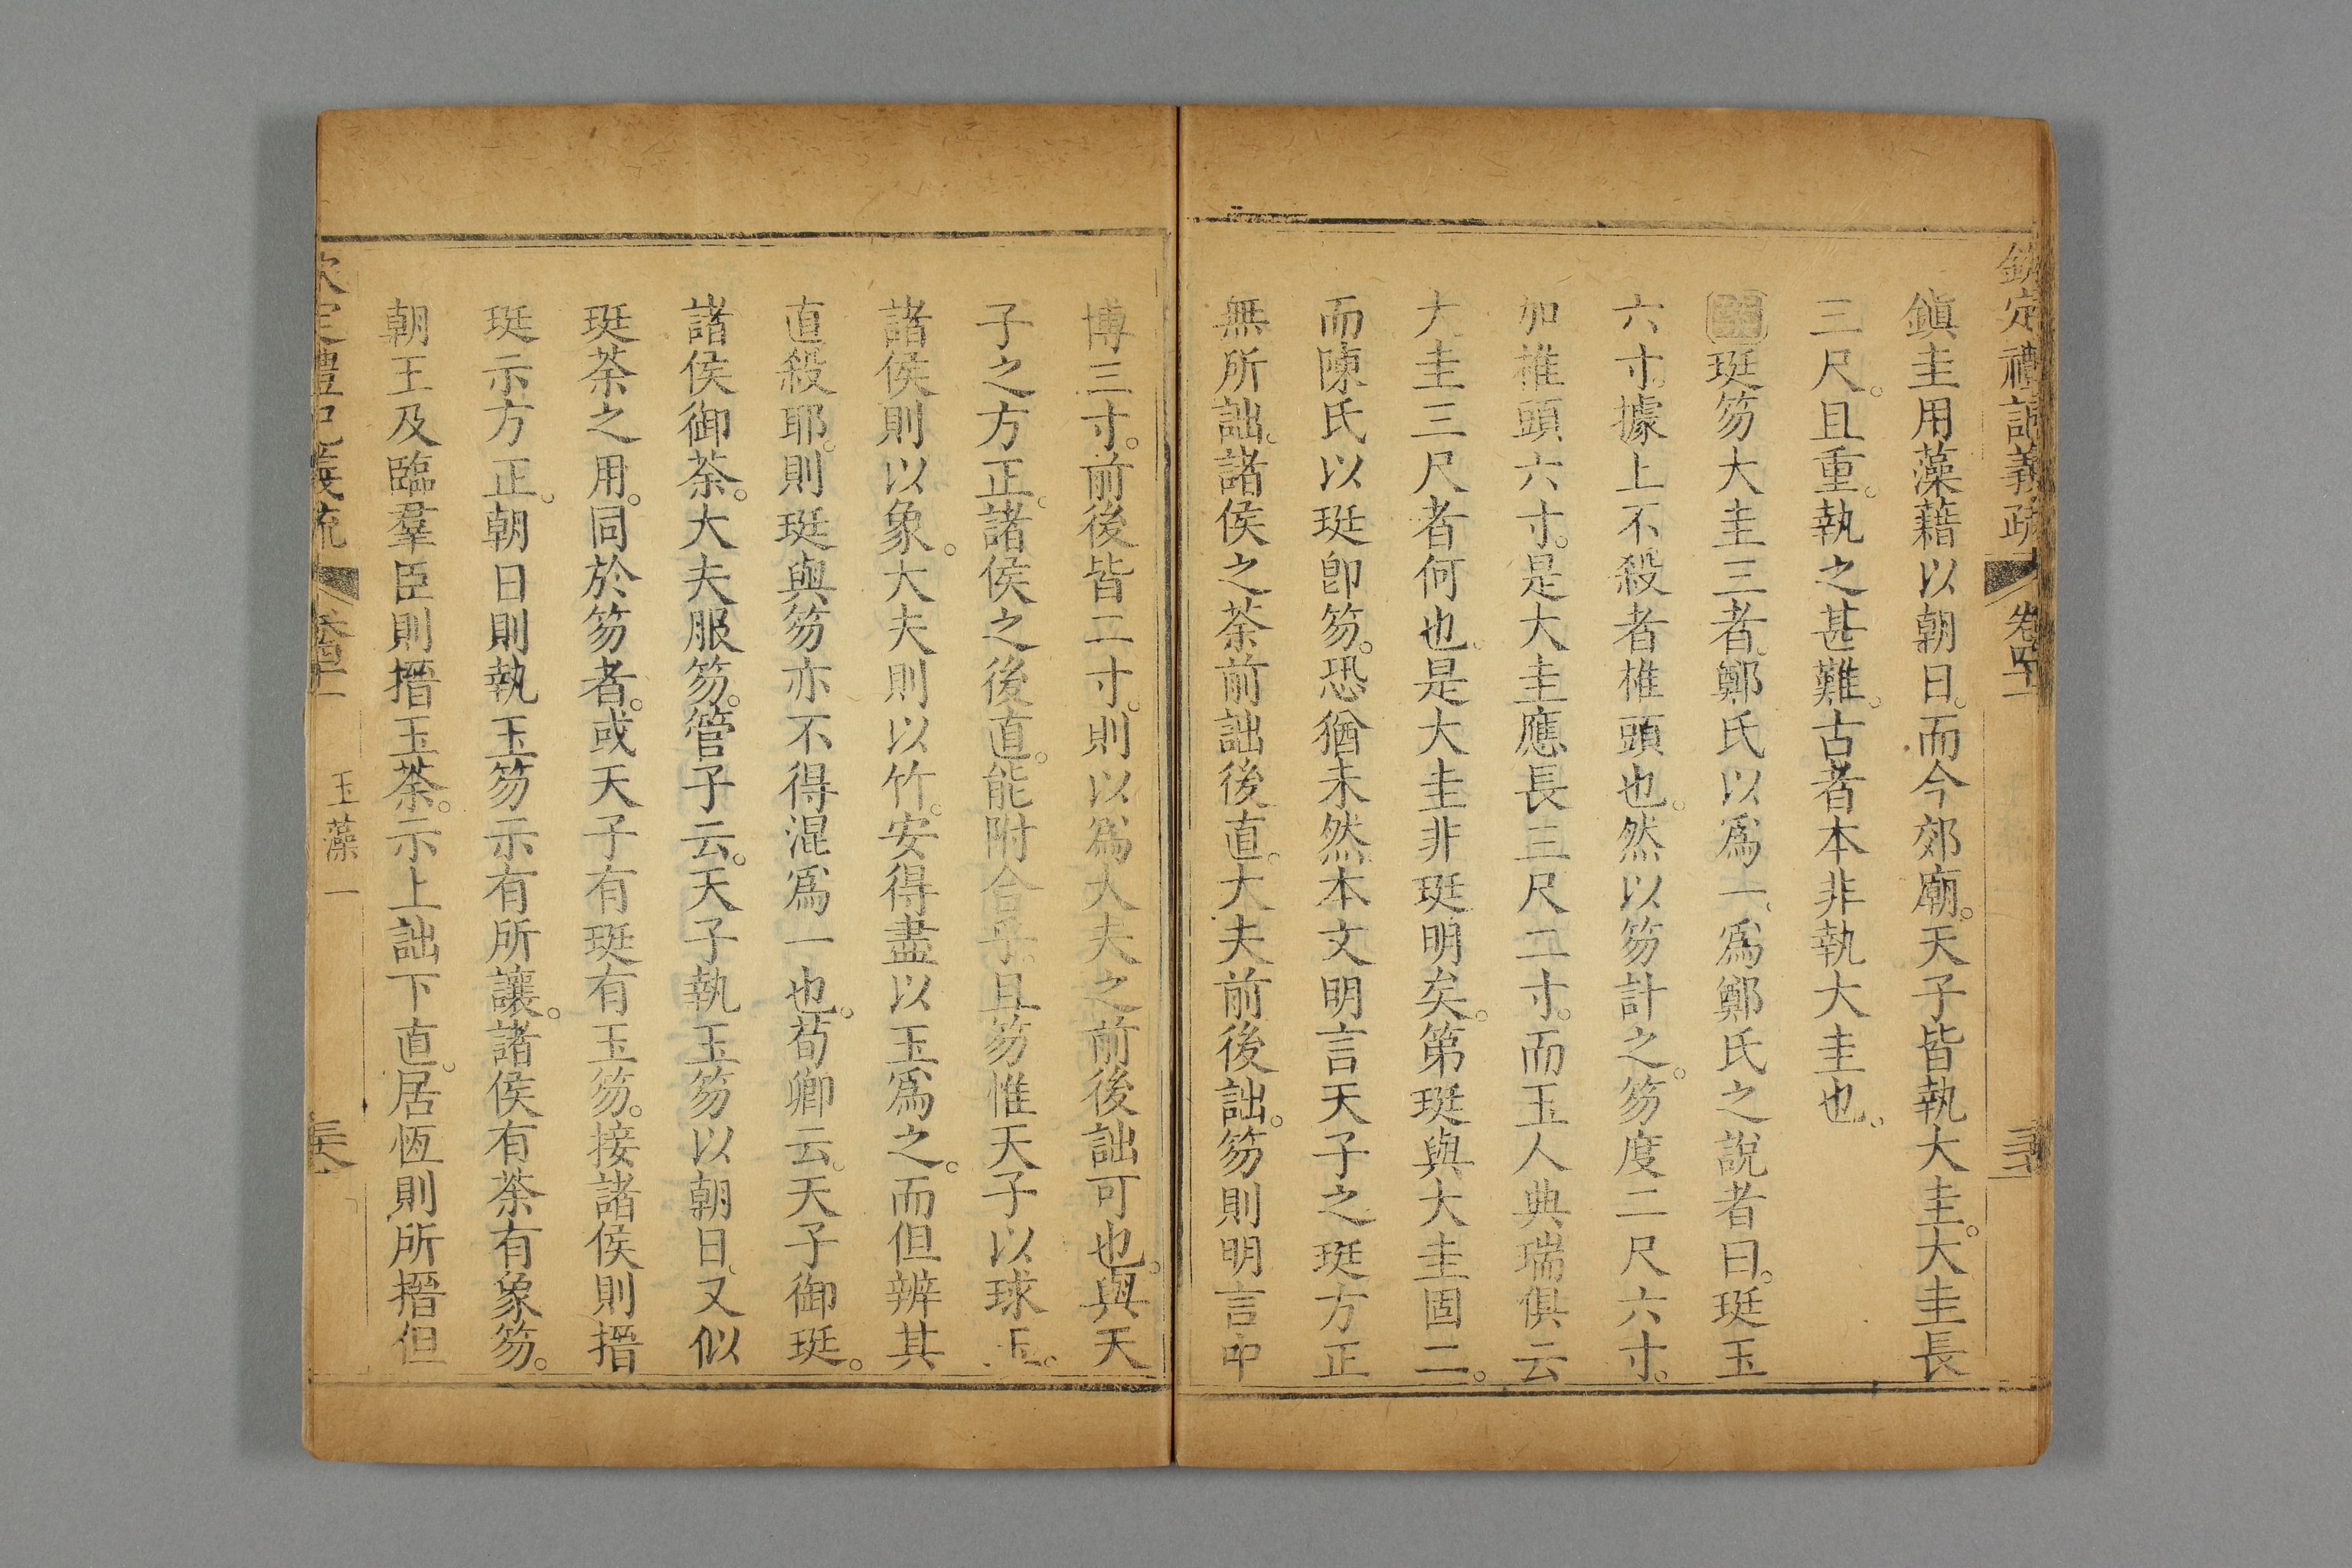 欽定禮記義疏 卷四十一
鎭圭用藻藉以朝日。而今郊廟。天子皆執大圭。大圭長
三尺。且重。執之甚難。古者本非執大圭也。
珽笏大圭三者。鄭氏以爲一、爲鄭氏之說者曰。珽玉
六寸。據上不殺者椎頭也。然以笏計之。笏度二尺六寸。
加椎頭六寸。是大圭應長三尺二寸。而玉人典瑞俱云
大圭三尺者何也。是大圭非珽明矣。第珽與大圭固二。
而陳氏以珽卽笏。恐猶未然。本文明言天子之珽方正
無所詘。諸侯之荼前詘後直。大夫前後詘。笏則明言中
博三寸。前後皆二寸。則以爲大夫之前後詘可也。與天
子之方正。諸侯之後直。能附合乎。且笏惟天子以球玉。
諸侯則以象。大夫則以竹。安得盡以玉爲之。而但辨其
直殺耶。則珽與笏亦不得混爲一也。荀卿云。天子御珽。
諸侯御荼。大夫服笏。管子云。天子執玉笏以朝日、又似
珽荼之用。同於笏者。或天子有珽有玉笏。接諸侯則搢
珽示方正。朝日則執玉笏示有所讓。諸侯有荼有象笏。
朝王及臨羣臣則搢玉荼。示上詘下直。居恆則所搢但
欽定禮記義疏 卷四十一 玉藻一